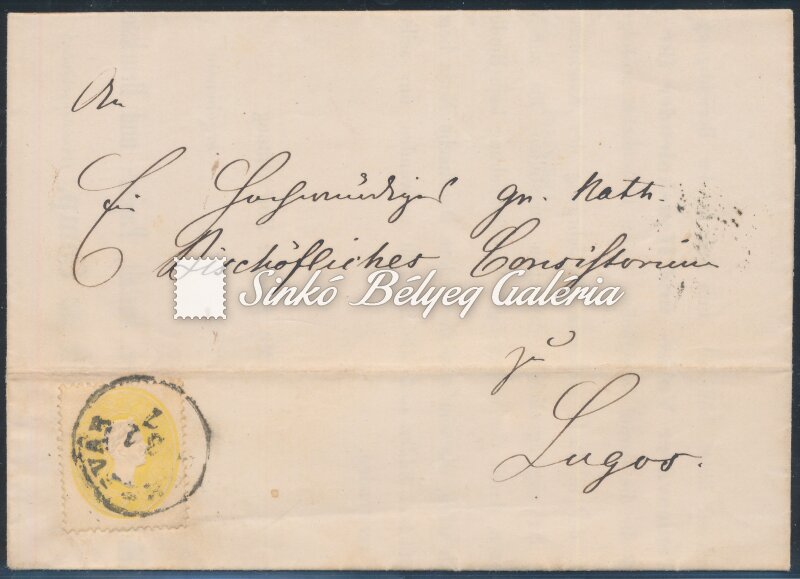 An
Ein Hochwürdiges gr. Kath.
Bischöfliches Consistorium
Sinkó Bélyeg Galéria
zu
Lugos.
VÁR